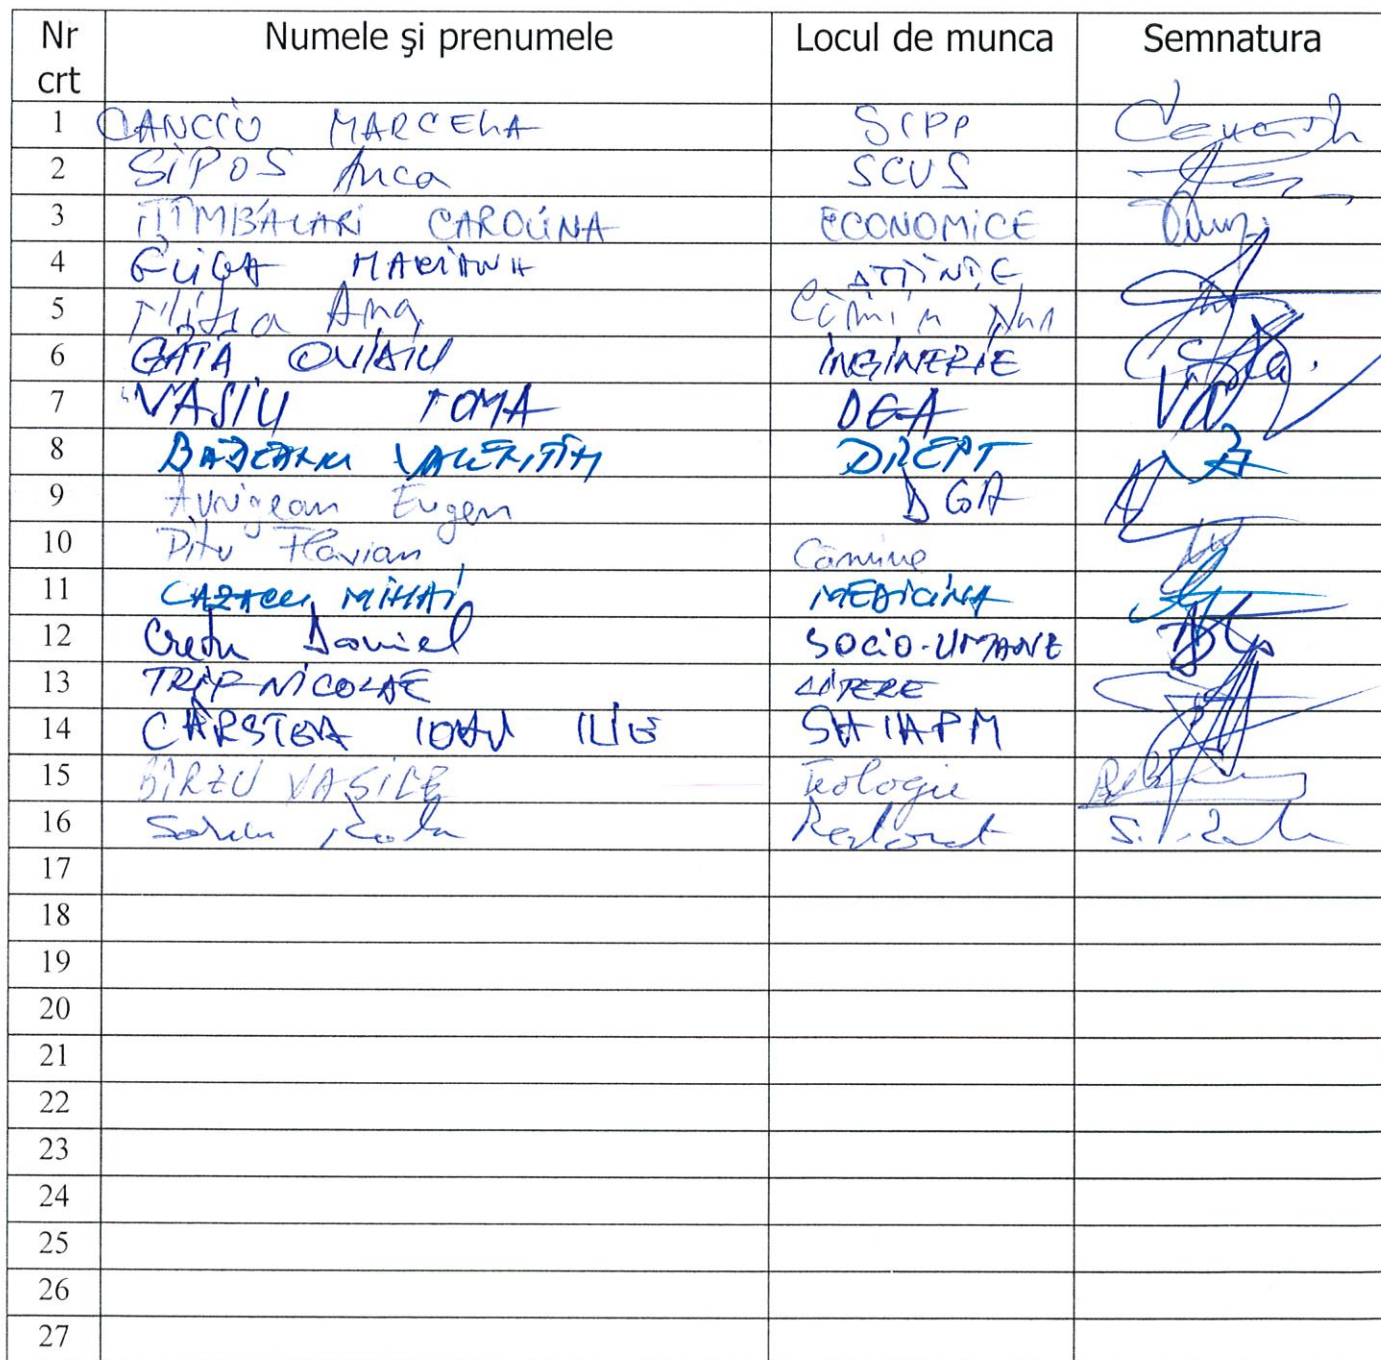 Nr crt Numele şi prenumele Locul de munca Semnatura
1 CANCIU MARCELA SIPP
2 SIPOS Anca SCUS
3 ȚÎMBALARI CAROLINA ECONOMICE
4 GLIGA MARIANA ȘTIINȚE
5 Ana Cămin
6 GÂȚĂ OVIDIU INGINERIE
7 VASIU TOMA DGA
8 VALENTIN DREPT
9 Avrigean Eugen DGA
10 Ditu Flavian Camine
11 CAZACU MIHAI MEDICINA
12 Cretu Daniel SOCIO-UMANE
13 TRIF NICOLAE LITERE
14 CÂRSTEA IOAN ILIE SAIAPM
15 BÎRZU VASILE Teologie
16 Sorin Rectorat
17
18
19
20
21
22
23
24
25
26
27